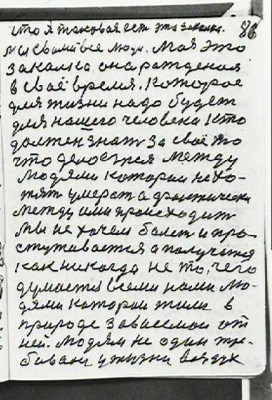 что я таковая есть это закалка. 86
Мы с вами все люди. Моя это
закалка она рожденая
в своё время, которое
для жизни надо будет
для нашего человека кто
должен знат за своё то
что делается между
людями которои не хо-
тят умерат а фактически
между ими происходит
Мы не хочем болет и про-
стуживатся а получается
как никогда не то, чего
думается всеми нами лю-
дями которои жили в
природе зависемои от
ней. Людям не один тре-
бовани у жизни воздух